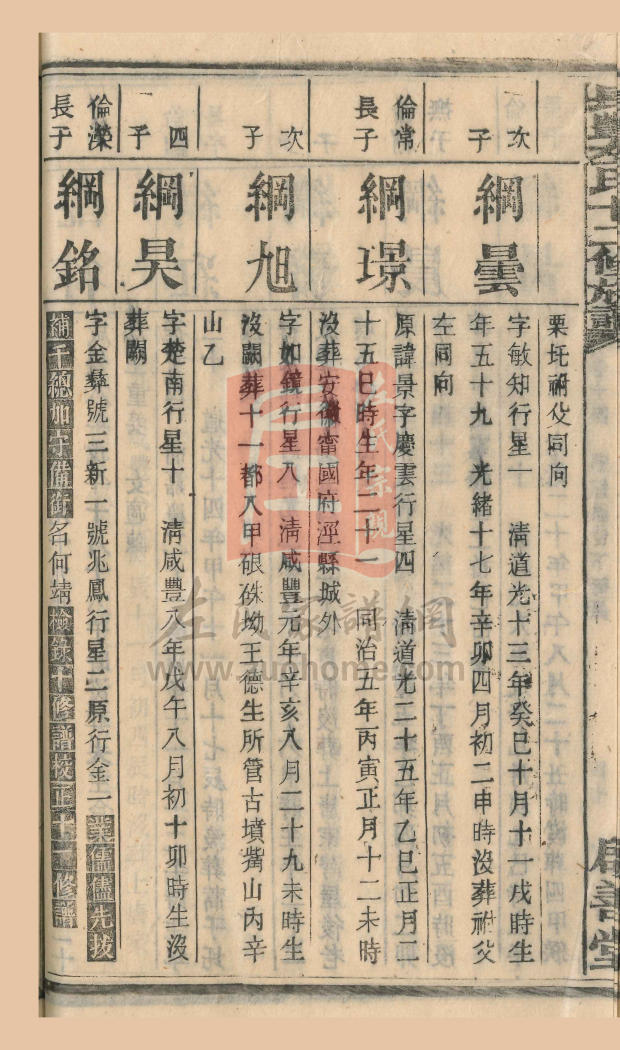 栗圫祔父同向
次子
綱曇
字敏知行星一 清道光十三年癸巳十月十一戌時生
年五十九 光緒十七年辛卯四月初二申時沒葬祔父
左同向
倫常長子
綱璟
原諱景字慶雲行星四 清道光二十五年乙巳正月二
十五巳時生年二十一 同治五年丙寅正月十二未時
沒葬安徽甯國府涇縣城外
次子
綱旭
字如鏡行星八 清咸豐元年辛亥八月二十九未時生
沒闕葬十一都八甲硍硃坳王德生所管古墳嘴山丙辛
山乙
四子
綱昊
字楚南行星十 清咸豐八年戊午八月初十卯時生沒
葬闕
倫濚長子
綱銘
字金彝號三新一號兆鳳行星二原行金一業儒儘先拔
補千總加守備銜名何靖檢錄十修譜校正十一修譜二十
氏十二修族譜
善堂
左氏宗親
左氏家譜網
www.zuohome.com